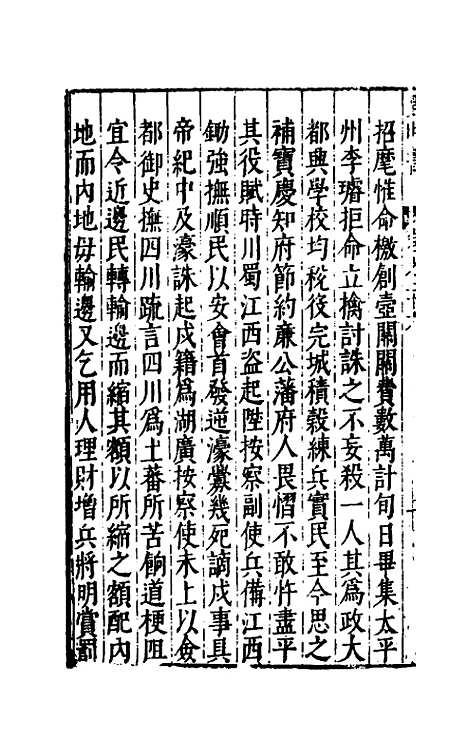 招麾惟命檄創壺關關費數萬計旬日畢集太平
州李璿拒命立擒討誅之不妄殺一人其爲政大
都興學校均稅役完城積榖練兵實民至今思之
補寶慶知府節約廉公藩府人畏慴不敢忤盡平
其役賦時川蜀江西盜起陞按察副使兵備江西
鋤強撫順民以安會首發逆濠黨幾死謫戍事具
帝紀中及濠誅起戍籍爲湖廣按察使未上以僉
都御史撫四川䟽言四川爲土蕃所苦餉道梗阻
宜令近邊民轉輸邊而縮其額以所縮之額配內
地而內地毋輸邊又乞用人理財增兵將明賞罰